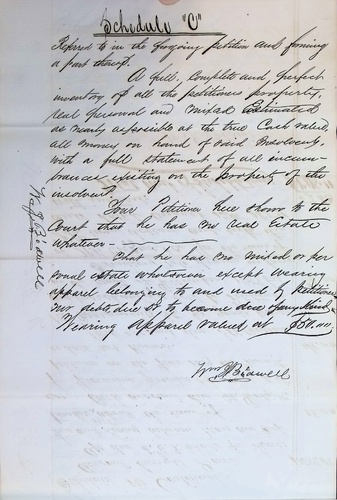 Schedule "C"
Referred to in the foregoing petition and forming
a part thereof.
A full, complete and, perfect
inventory of all the petitioner property,
real personal and mixed Estimated
as nearly as possible at the true Cash value,
all money on hand of said Insolvent,
with a full statement of all incum-
brances existing on the property of the
insolvent,
Your Petitioner here shows to the
Court that he has no real Estate
whatever
That he has no mixed or per
sonal estate whatsoever except wearing
apparel belonging to and used by Petitioner
no debts due or, to become due of any kind.
Wearing Apparel valued at $50.
Wm J Bidwell
Wm J Bidwell